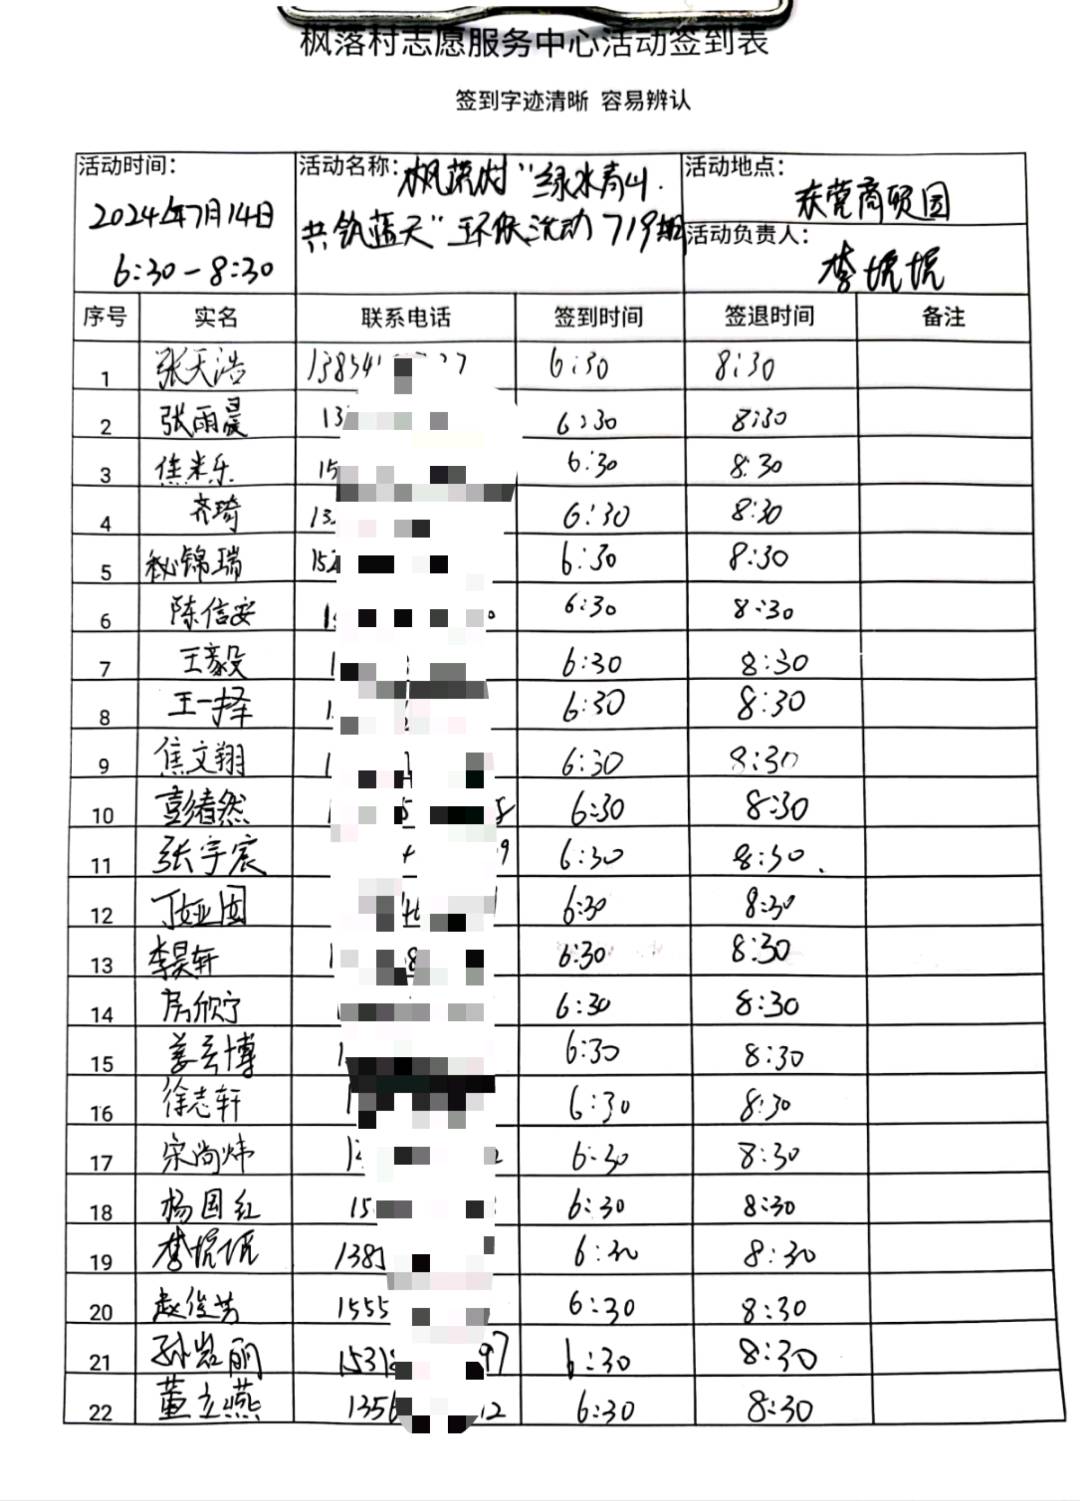 枫落村志愿服务中心活动签到表
签到字迹清晰 容易辨认
活动时间: 活动名称: 枫落村“绿水青山 活动地点:
2024年7月14日 共筑蓝天”环保活动719期 东莞商贸园
6:30-8:30 活动负责人:
李
序号 实名 联系电话 签到时间 签退时间 备注
1 张天浩 6:30 8:30
2 张雨晨 13 6:30 8:30
3 焦米乐 15 6:30 8:30
4 齐琦 13 6:30 8:30
5 秘锦瑞 15 6:30 8:30
6 陈信安 1 6:30 8:30
7 王毅 1 6:30 8:30
8 王一择 1 6:30 8:30
9 焦文翔 1 6:30 8:30
10 彭绪然 6:30 8:30
11 张宇宸 6:30 8:30
12 丁娅囡 6:30 8:30
13 李昊轩 6:30 8:30
14 房欣宁 6:30 8:30
15 姜云博 6:30 8:30
16 徐志轩 6:30 8:30
17 宋尚炜 6:30 8:30
18 杨国红 15 6:30 8:30
19 李 138 6:30 8:30
20 赵俊芳 1555 6:30 8:30
21 孙岩丽 1531 97 6:30 8:30
22 董立燕 1356 12 6:30 8:30